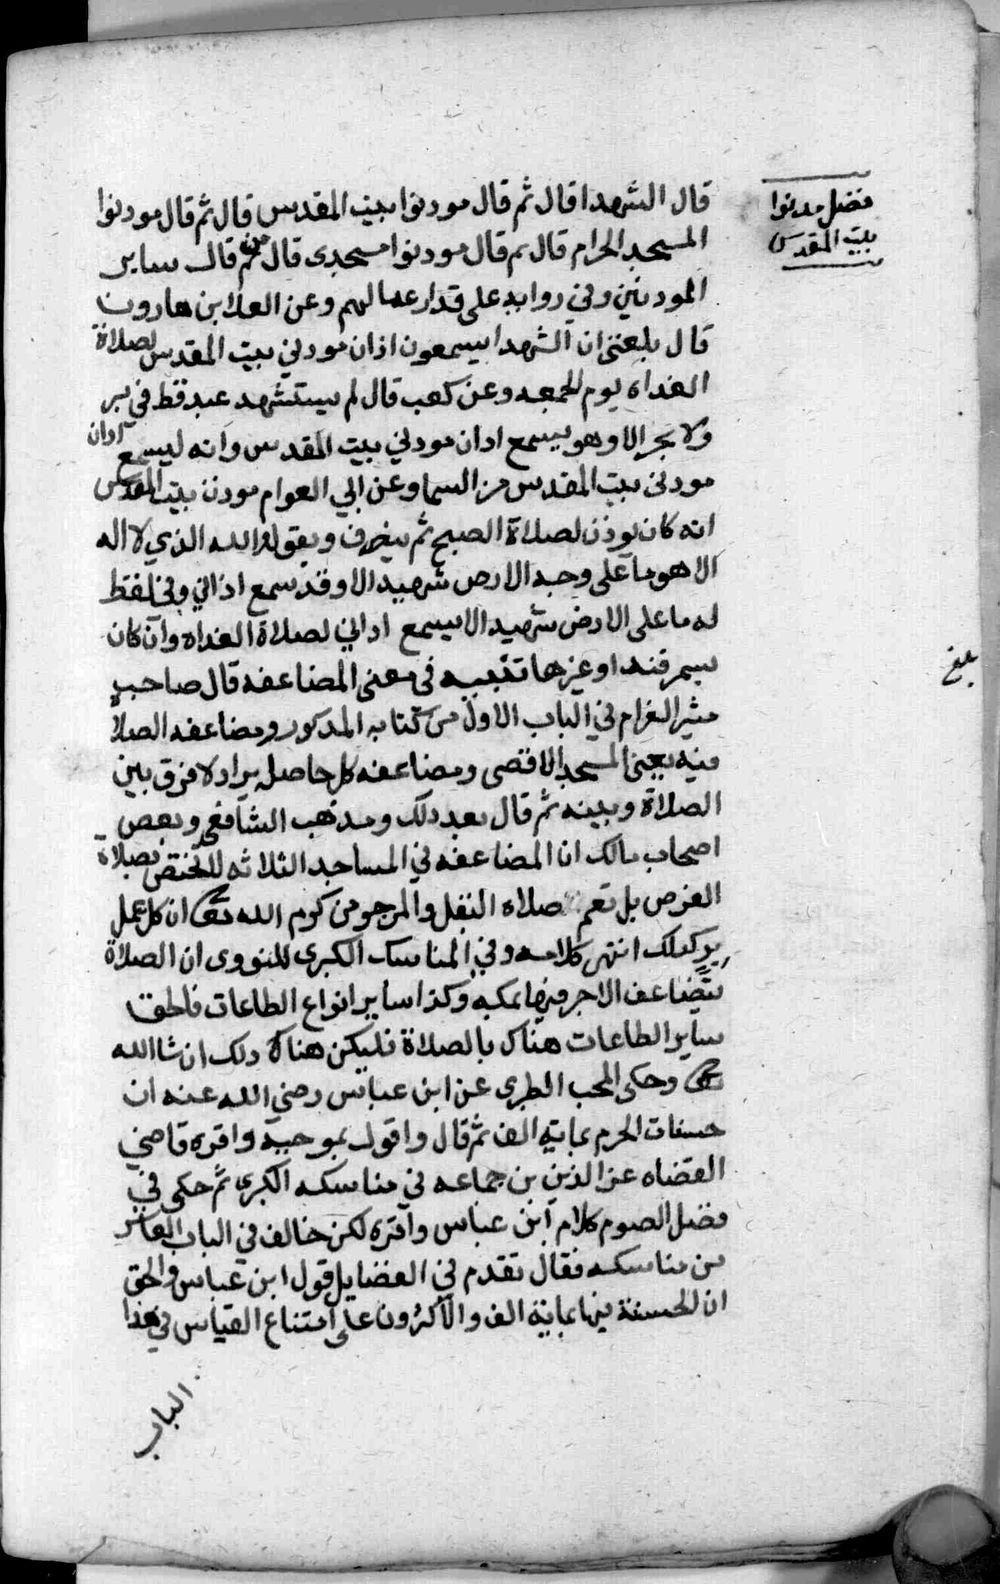 فضل مودنوا
بيت المقدس
قال الشهدا قال ثم قال مودنوا بيت المقدس قال ثم قال مودنوا
المسجد الحرام قال ثم قال مودنوا مسجدي قال ثم قال ساير
المودنين وفي رواية على قدر اعمالهم وعن العلا بن هارون
قال بلغني ان الشهدا يسمعون اذان مودني بيت المقدس لصلاة
الغداة يوم الجمعه وعن كعب قال لم يستشهد عبد قط في بر
ولا بحر الا وهو يسمع اذان مودني بيت المقدس وانه ليسمع اذان
مودني بيت المقدس من السما وعن ابي العوام مودن بيت المقدس
انه كان يوذن لصلاة الصبح ثم ينحرف ويقول والله الذي لا اله
الا هو ما على وجه الارض شهيد الا وقد سمع اذاني وفي لفظ
له ما على الارض شهيد الا يسمع اذاني لصلاة الغداه وان كان
بسمرقند او غيرها تنبيه في معنى المضاعفه قال صاحب
مثير الغرام في الباب الاول من كتابه المذكور ومضاعفه الصلاة
فيه يعني المسجد الاقصى ومضاعفه كل حاصل يراد لا فرق بين
الصلاة وبينه ثم قال بعد ذلك ومذهب الشافعي وبعض
اصحاب مالك ان المضاعفه في المساجد الثلاثه لا تختص بصلاة
الفرض بل تعم صلاه النفل والمرجو من كرم الله تعالى ان كل عمل
بر كذلك انتهى كلامه وفي المناسك الكبرى للنووي ان الصلاة
يتضاعف الاجر فيها بمكه وكذا ساير انواع الطاعات فالحق
ساير الطاعات هناك بالصلاة فليكن هناك ذلك ان شا الله
تعالى وحكى المحب الطبري عن ابن عباس رضي الله عنه ان
حسنات الحرم بماية الف ثم قال واقول بموجبه واقره قاضي
القضاه عز الدين بن جماعه في مناسكه الكبرى ثم حكى في
فضل الصوم كلام ابن عباس واقره لكن خالف في الباب العاشر
من مناسكه فقال تقدم في الفضايل قول ابن عباس والحق
ان الحسنة فيها بماية الف والاكثرون على امتناع القياس في هذا
الباب
بلغ